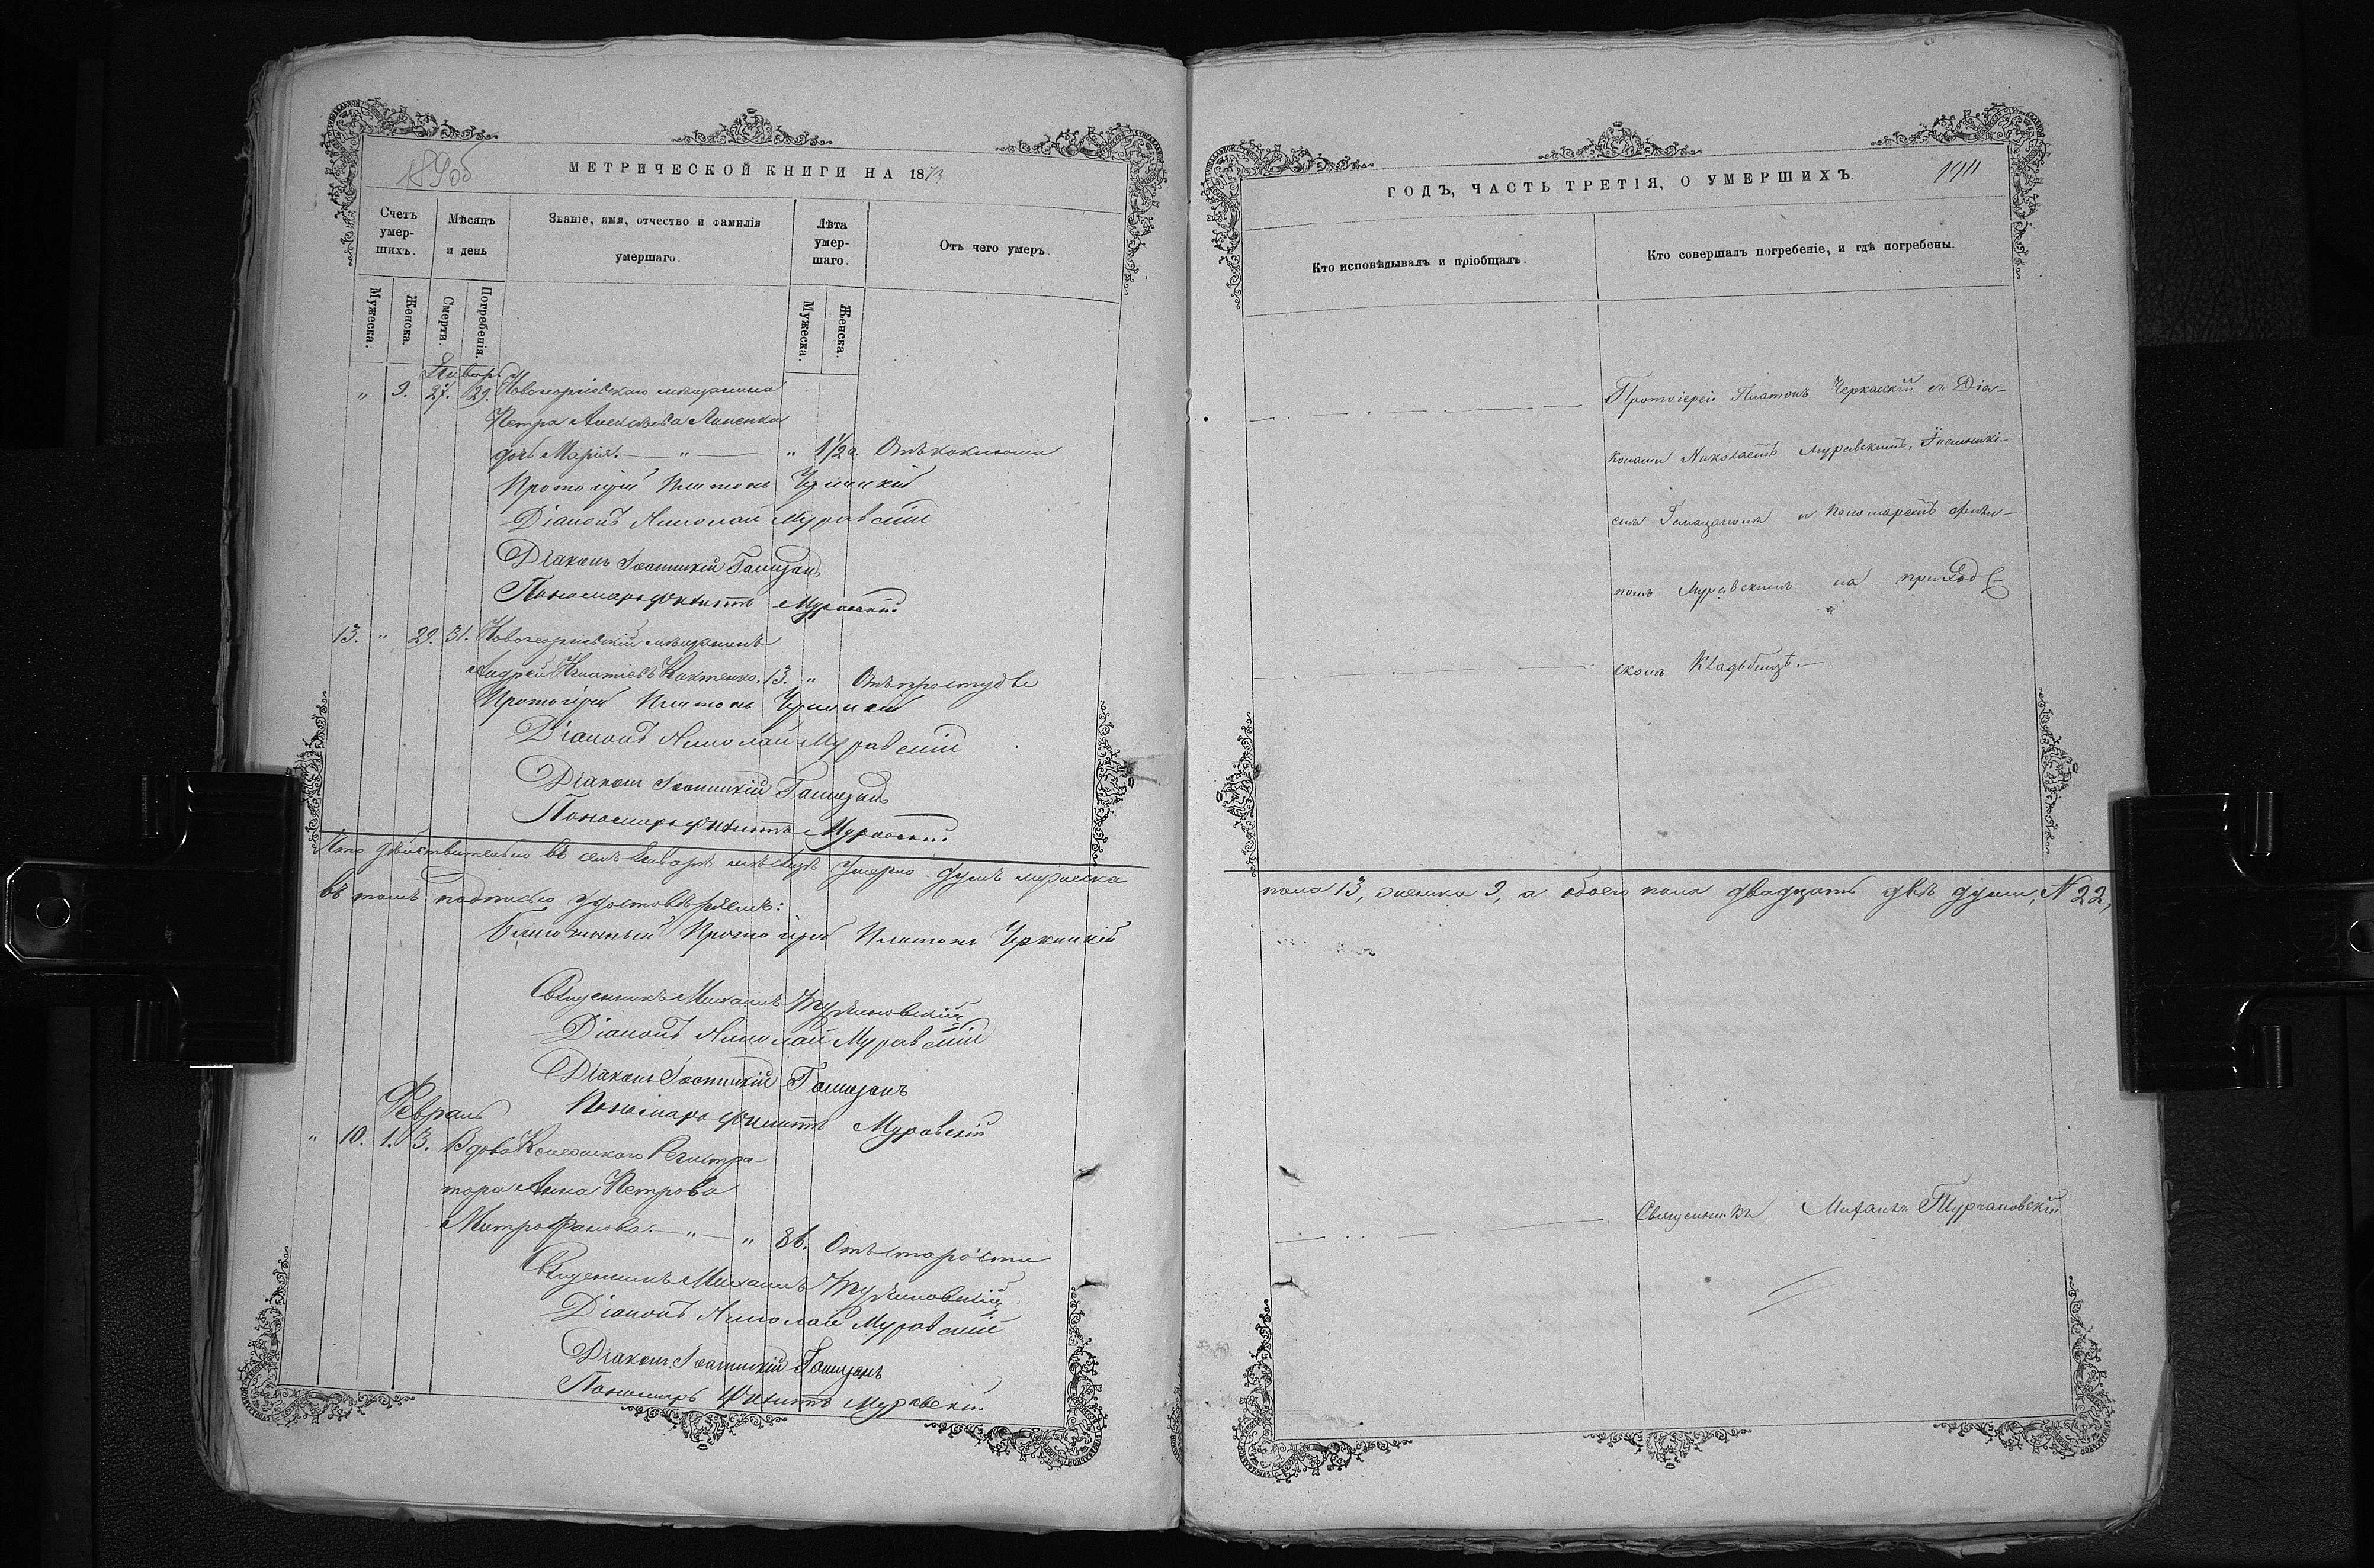 189об
МЕТРИЧЕСКОЙ КНИГИ НА 1873
Счетъ умер-шихъ.
Мѣсяцъ и день
Званіе, имя, отчество и фамилія умершаго.
Лѣта умер-шаго.
Отъ чего умеръ.
Мужеска.
Женска.
Смерти.
Погребенія.
Мужеска.
Женска.
Январь
" 9. 27. 29. Новогеоргіевскаго мѣщанина
Петра Алексѣева
дочь Марія. — " — " 1½ Отъ коклюша
Протоіерей Платонъ Черкаскій
Діаконъ Николай Муравскій
Діаконъ Іоанникій
Пономарь Филиппъ Муравскій
13. " 29. 31. Новогеоргіевскій мѣщанинъ
Андрей Игнатіевъ 13. " Отъ простуды
Протоіерей Платонъ Черкаскій
Діаконъ Николай Муравскій
Діаконъ Іоанникій
Пономарь Филиппъ Муравскій
Что дѣйствительно въ семъ Январѣ мѣсяцѣ умерло душъ мужеска
въ томъ подписью удостовѣряемъ:
Благочинный Протоіерей Платонъ Черкаскій
Священникъ Михаилъ Турчановскій
Діаконъ Николай Муравскій
Діаконъ Іоанникій
Пономарь Филиппъ Муравскій
Февраль
" 10. 1. 3. Вдова Колежскаго Регистра-
тора Анна Петрова
Митрофанова. — " — " 86. Отъ старости
Священникъ Михаилъ Турчановскій
Діаконъ Николай Муравскій
Діаконъ Іоанникій
Пономарь Филиппъ Муравскій
ГОДЪ, ЧАСТЬ ТРЕТІЯ, О УМЕРШИХЪ.
190
Кто исповѣдывалъ и пріобщалъ.
Кто совершалъ погребеніе, и гдѣ погребены.
Протоіерей Платонъ Черкаскій съ Діа-
конами Николаемъ Муравскимъ, Іоанникі-
емъ и Пономаремъ Филип-
помъ Муравскимъ на приход-
скомъ Кладбищѣ.—
пола 13, женска 9, а обоего пола двадцать двѣ души, № 22,
Священникъ Михаилъ Турчановскій